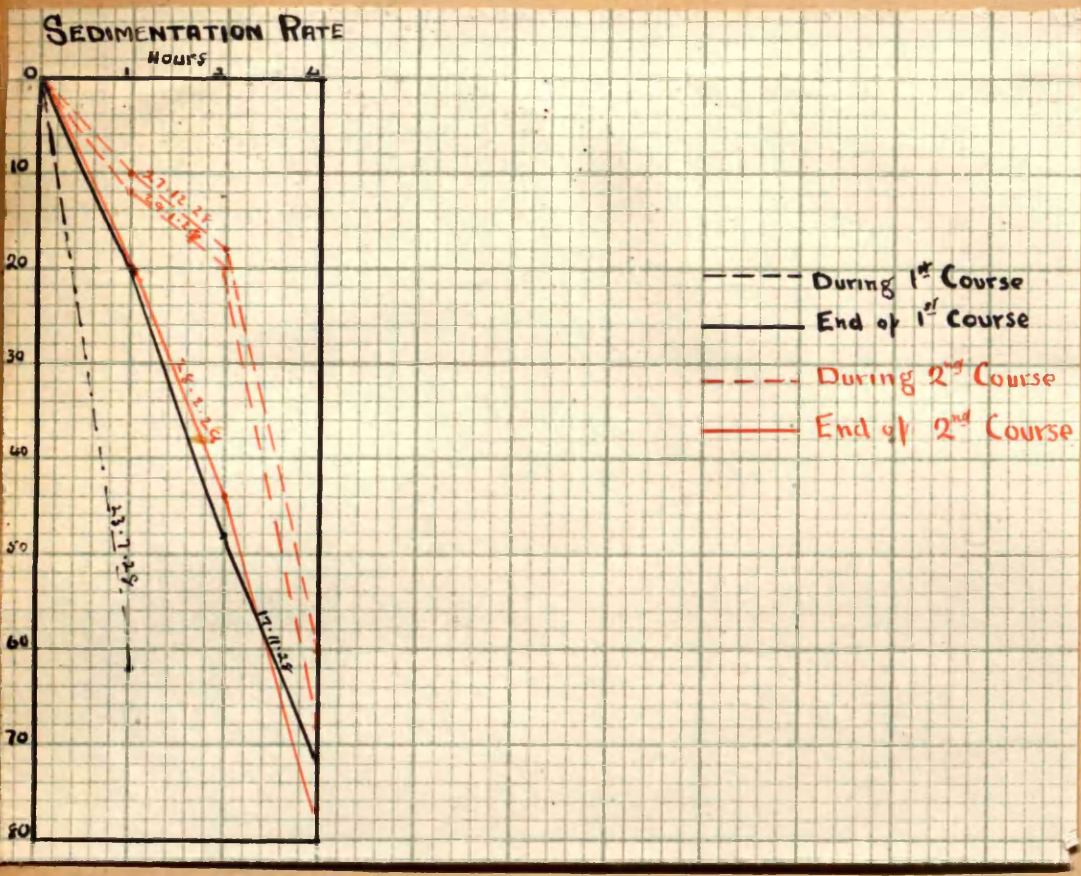 SEDIMENTATION RATE
Hours
0 1 2 4
10
20
30
40
50
60
70
80
27.12.28
29.1.29
28.2.29
23.7.28
17.11.28
During 1st Course
End of 1st Course
During 2nd Course
End of 2nd Course